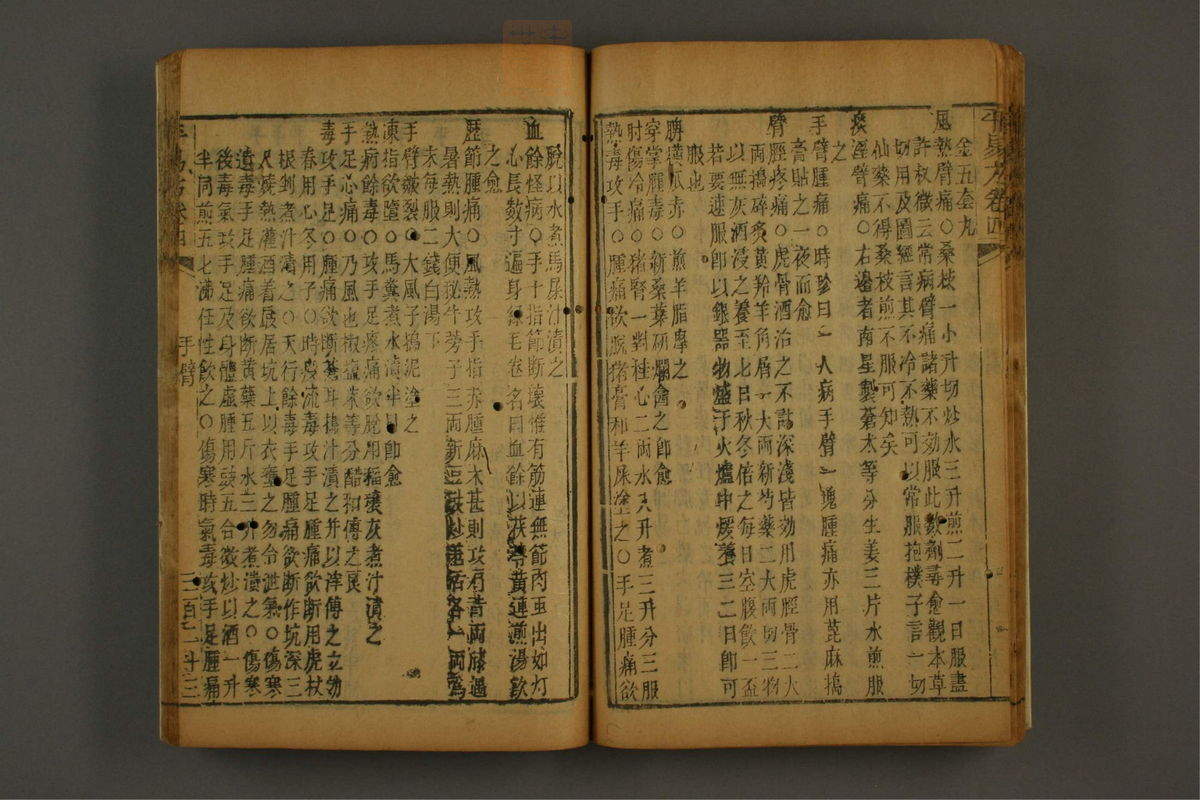 金五會丸
風熱臂痛○桑枝一小升切炒水三升煎二升一日服盡
許叔微云常病臂痛諸藥不効服此數劑尋愈觀本草
切用及圖經言其不冷不熱可以常服抱樸子言一切
仙藥不得桑枝煎不服可知矣
痰淫臂痛○右邊者南星製蒼朮等分生姜三片水煎服
之
手臂腫痛○時珍曰一人病手臂一塊腫痛亦用蓖麻搗
膏貼之一夜而愈
臂脛疼痛○虎骨酒治之不計深淺皆効用虎脛骨二大
兩搗碎炙黃羚羊角屑一大兩新芍藥二大兩切三物
以無灰酒浸之養至七日秋冬倍之每日空腹飲一盃
若要速服卽以銀器物盛于火爐中煖養三二日卽可
服也
赤○煎羊脂摩之
穿掌腫毒○新桑葉研爛盦之卽愈
肘傷冷痛○猪腎一對桂心二兩水八升煮三升分三服
熱毒攻手○腫痛欲脫猪膏和羊屎塗之○手足腫痛欲
脫以水煮馬屎汁漬之
血餘怪病○手十指節斷壞惟有筋連無節肉虫出如灯
心長数寸遍身綠毛卷名曰血餘以茯苓黃連煎湯飲
之愈
歷節腫痛○風熱攻手指赤腫麻木甚則攻肩背兩膝遇
暑熱則大便秘牛蒡子三兩新豆豉炒羌活各一兩爲
末每服二錢白湯下
手臂皴裂○大風子搗泥塗之
凍指欲墮○馬糞煮水漬半日卽愈
熱病餘毒○攻手足疼痛欲脫用稻穰灰煮汁漬之
手足心痛○乃風也椒鹽末等分醋和傅之良
毒攻手足○腫痛欲斷蒼耳搗汁漬之并以滓傅之立効
春用心冬用子○時疾流毒攻手足腫痛欲斷用虎杖
根剉煮汁漬之○天行餘毒手足腫痛欲斷作坑深三
尺燒熱灌酒着屐居坑上以衣壅之勿令泄氣○傷寒
遺毒手足腫痛欲斷黃蘗五斤水三升煮漬之○傷寒
後毒氣攻手足及身體虛腫用豉五合微炒以酒一升
半同煎五七沸任性飲之○傷寒時氣毒攻手足腫痛
手臂